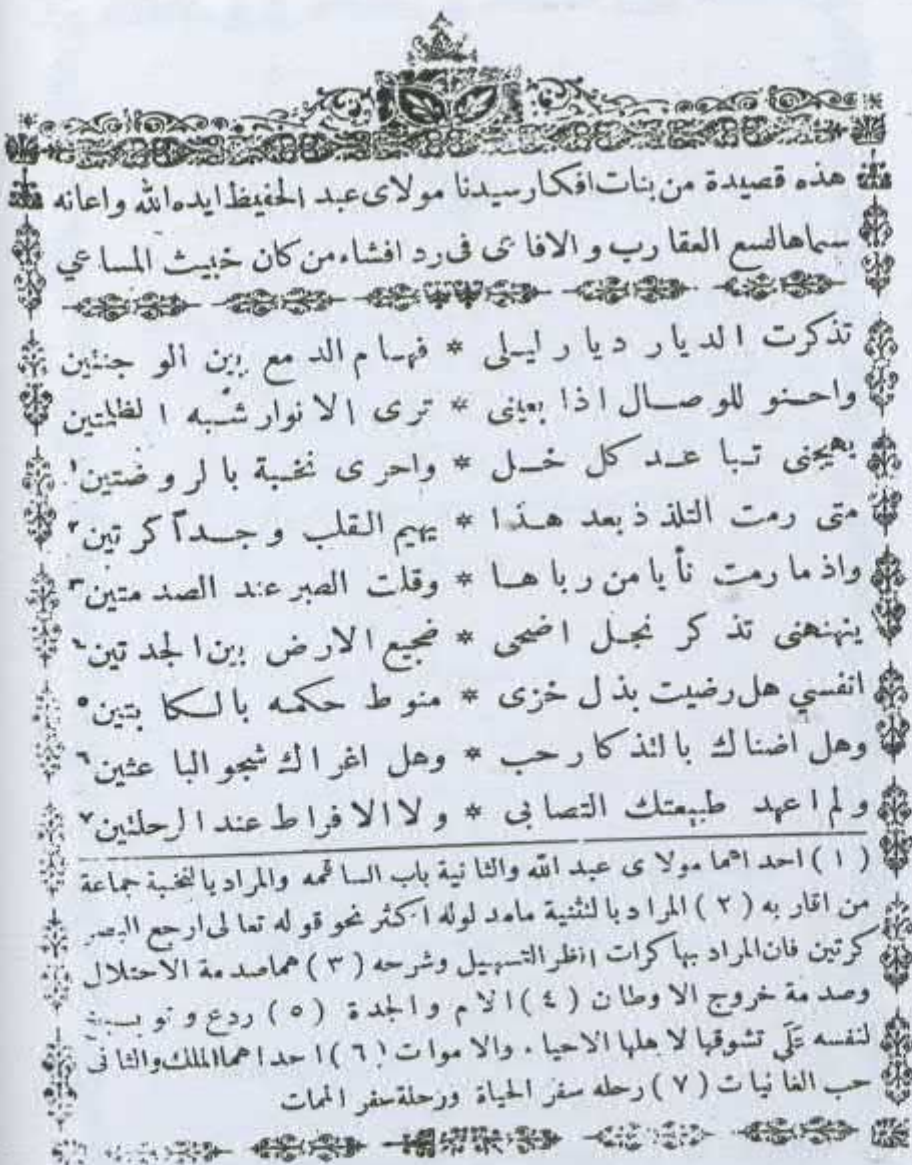 هذه قصيدة من بنات افكار سيدنا مولاى عبد الحفيظ ايده الله واعانه
سماها لسع العقارب والافاعى فى رد افشاء من كان خبيث المساعي
تذكرت الديار ديار ليلى * فهام الدمع بين الوجنتين
واحنو للوصال اذا بعينى * ترى الانوار شبه الظلمتين
يهيجنى تباعد كل خل * واحرى نخبة بالروضتين ١
متى رمت التلذذ بعد هذا * يهيم القلب وجدآ كرتين ٢
واذ ما رمت نأيا من رباها * وقلت الصبر عند الصدمتين ٣
ينهنهنى تذكر نجل اضحى * ضجيع الارض بين الجدتين ٤
انفسي هل رضيت بذل خزى * منوط حكمه بالكابتين ٥
وهل اضناك بالتذكار حب * وهل اغراك شجو الباعثين ٦
ولم اعهد طبيعتك التصابى * ولا الافراط عند الرحلتين ٧
(١) احداهما مولاى عبد الله والثانية باب السائمه والمراد بالنخبة جماعة
من اقاربه (٢) المراد بالتثنية مامدلوله اكثر نحو قوله تعالى ارجع البصر
كرتين فان المراد بها كرات انظر التسهيل وشرحه (٣) هما صدمة الاحتلال
وصدمة خروج الاوطان (٤) الام والجدة (٥) ردع وتوبيخ
لنفسه على تشوقها لاهلها الاحياء والاموات (٦) احداهما الملك والثانى
حب الغانيات (٧) رحله سفر الحياة ورحلة سفر الممات